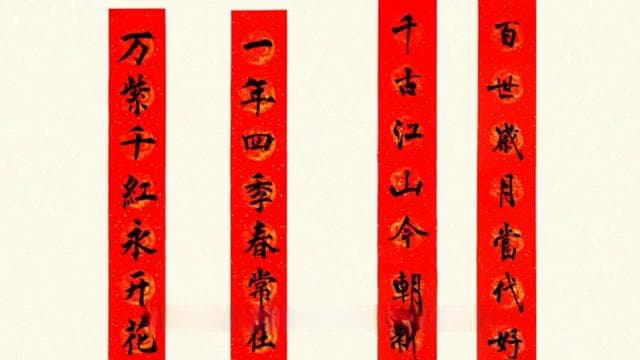 百世歲月當代好
千古江山今朝新
一年四季春常在
万紫千紅永开花